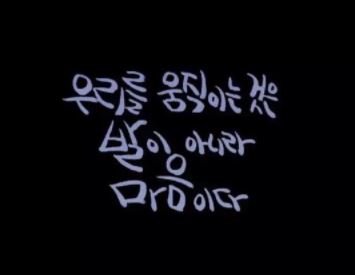 우리를 움직이는 것은
발이 아니라
마음이다